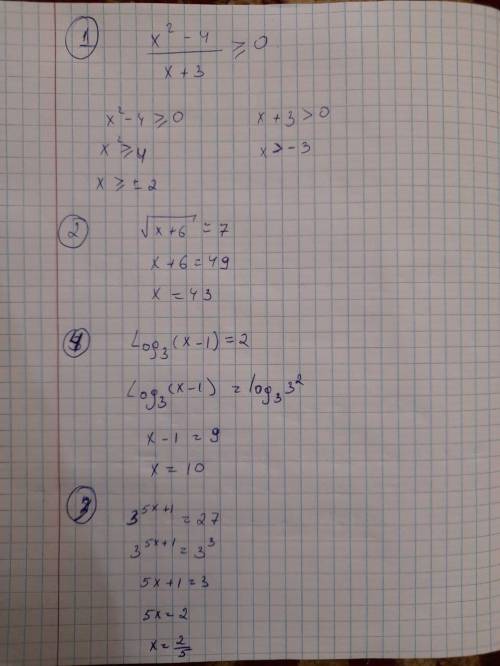 1 x² - 4 / x + 3 ≥ 0
x² - 4 ≥ 0 x + 3 > 0
x² ≥ 4 x > -3
x ≥ ± 2
2 √x+6 = 7
x + 6 = 49
x = 43
4 Log₃(x-1) = 2
Log₃(x-1) = log₃3²
x - 1 = 9
x = 10
3 3^(5x+1) = 27
3^(5x+1) = 3³
5x+1 = 3
5x = 2
x = 2/5